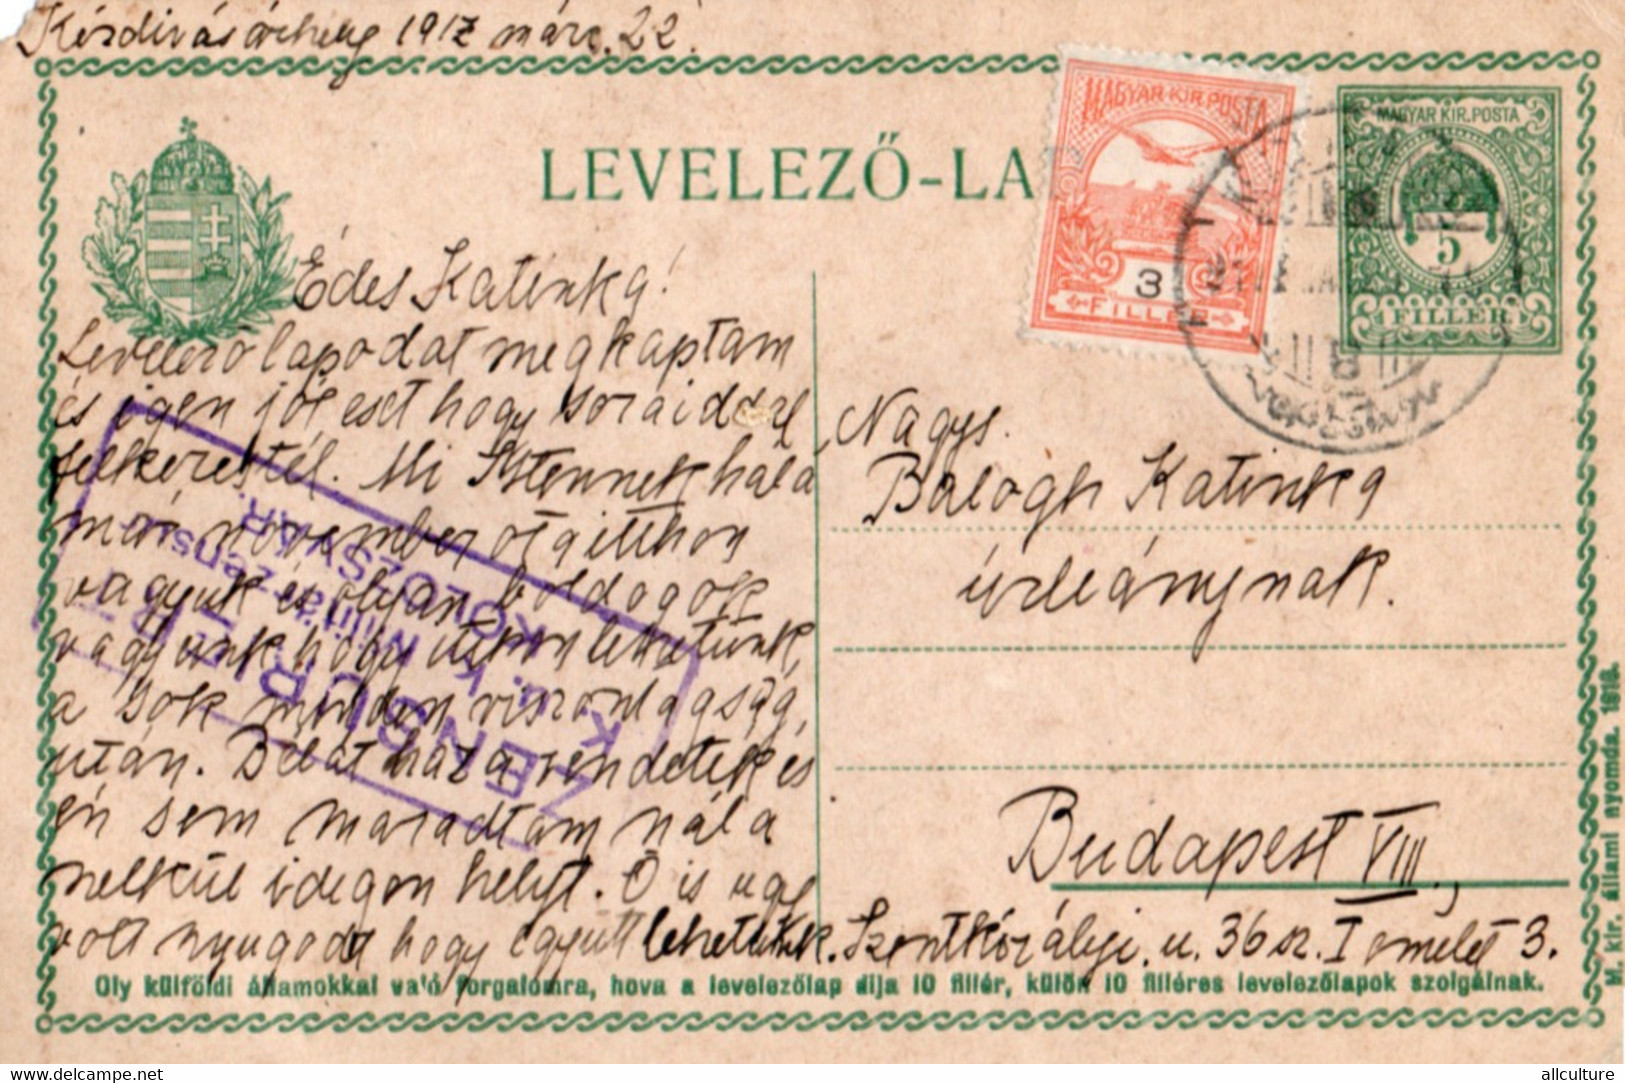 Kézdivásárhely 1917 márc. 22.
LEVELEZŐ-LA
MAGYAR KIR. POSTA
3
FILLÉR
MAGYAR KIR. POSTA
5
FILLÉR
B
Édes Katinka!
Levelező lapodat megkaptam
és igen jól eset hogy soraiddal
felkerestél. Mi Istennek hála
már november óta itthon
vagyunk és olyan boldogok
vagyunk hogy itthon lehetünk,
a sok minden viszontagság
után. Bélát haza rendelték és
én sem maradtam nála
nélkül idegen helyt. Ő is úgy
volt nyugodt hogy együtt lehetünk.
ZENSURIERT
K. u. K. Militärzensur
KOLOZSVÁR.
Nagys.
Balogh Katinka
úrleánynak.
Budapest VIII.,
Szentkirályi u. 36 sz. I emelet 3.
Oly külföldi államokkal való forgalomra, hova a levelezőlap díja 10 fillér, külön 10 filléres levelezőlapok szolgálnak.
M. kir. állami nyomda. 1916.
Delcampe.net
allculture